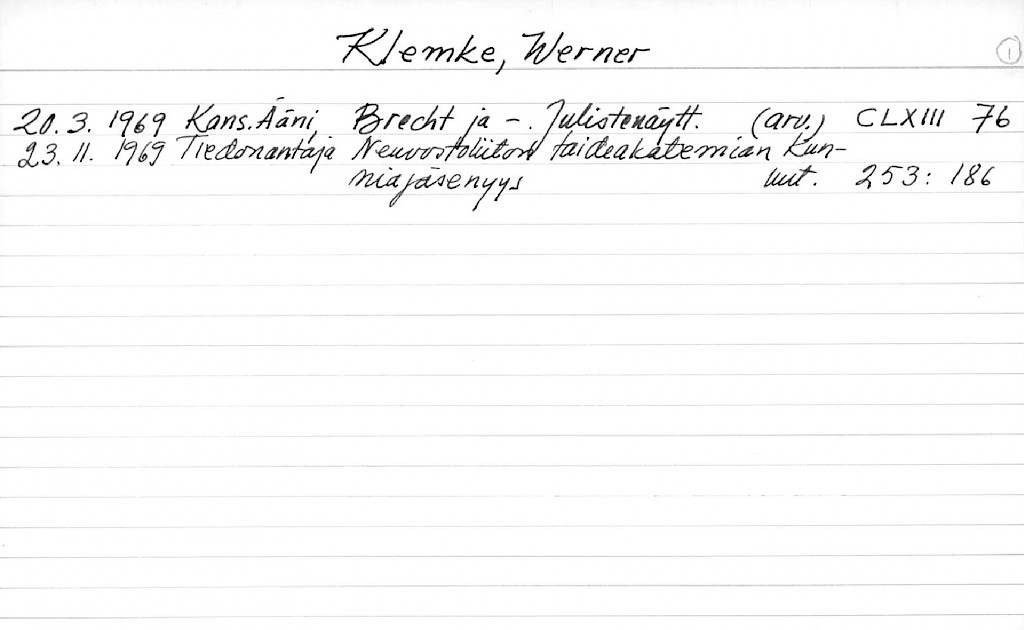 Klemke, Werner 1
20. 3. 1969 Kans. Ääni, Brecht ja -. Julistenäytt. (arv.) CLXIII 76
23. 11. 1969 Tiedonantaja Neuvostoliiton taideakatemian kun-
niajäsenyys uut. 253: 186